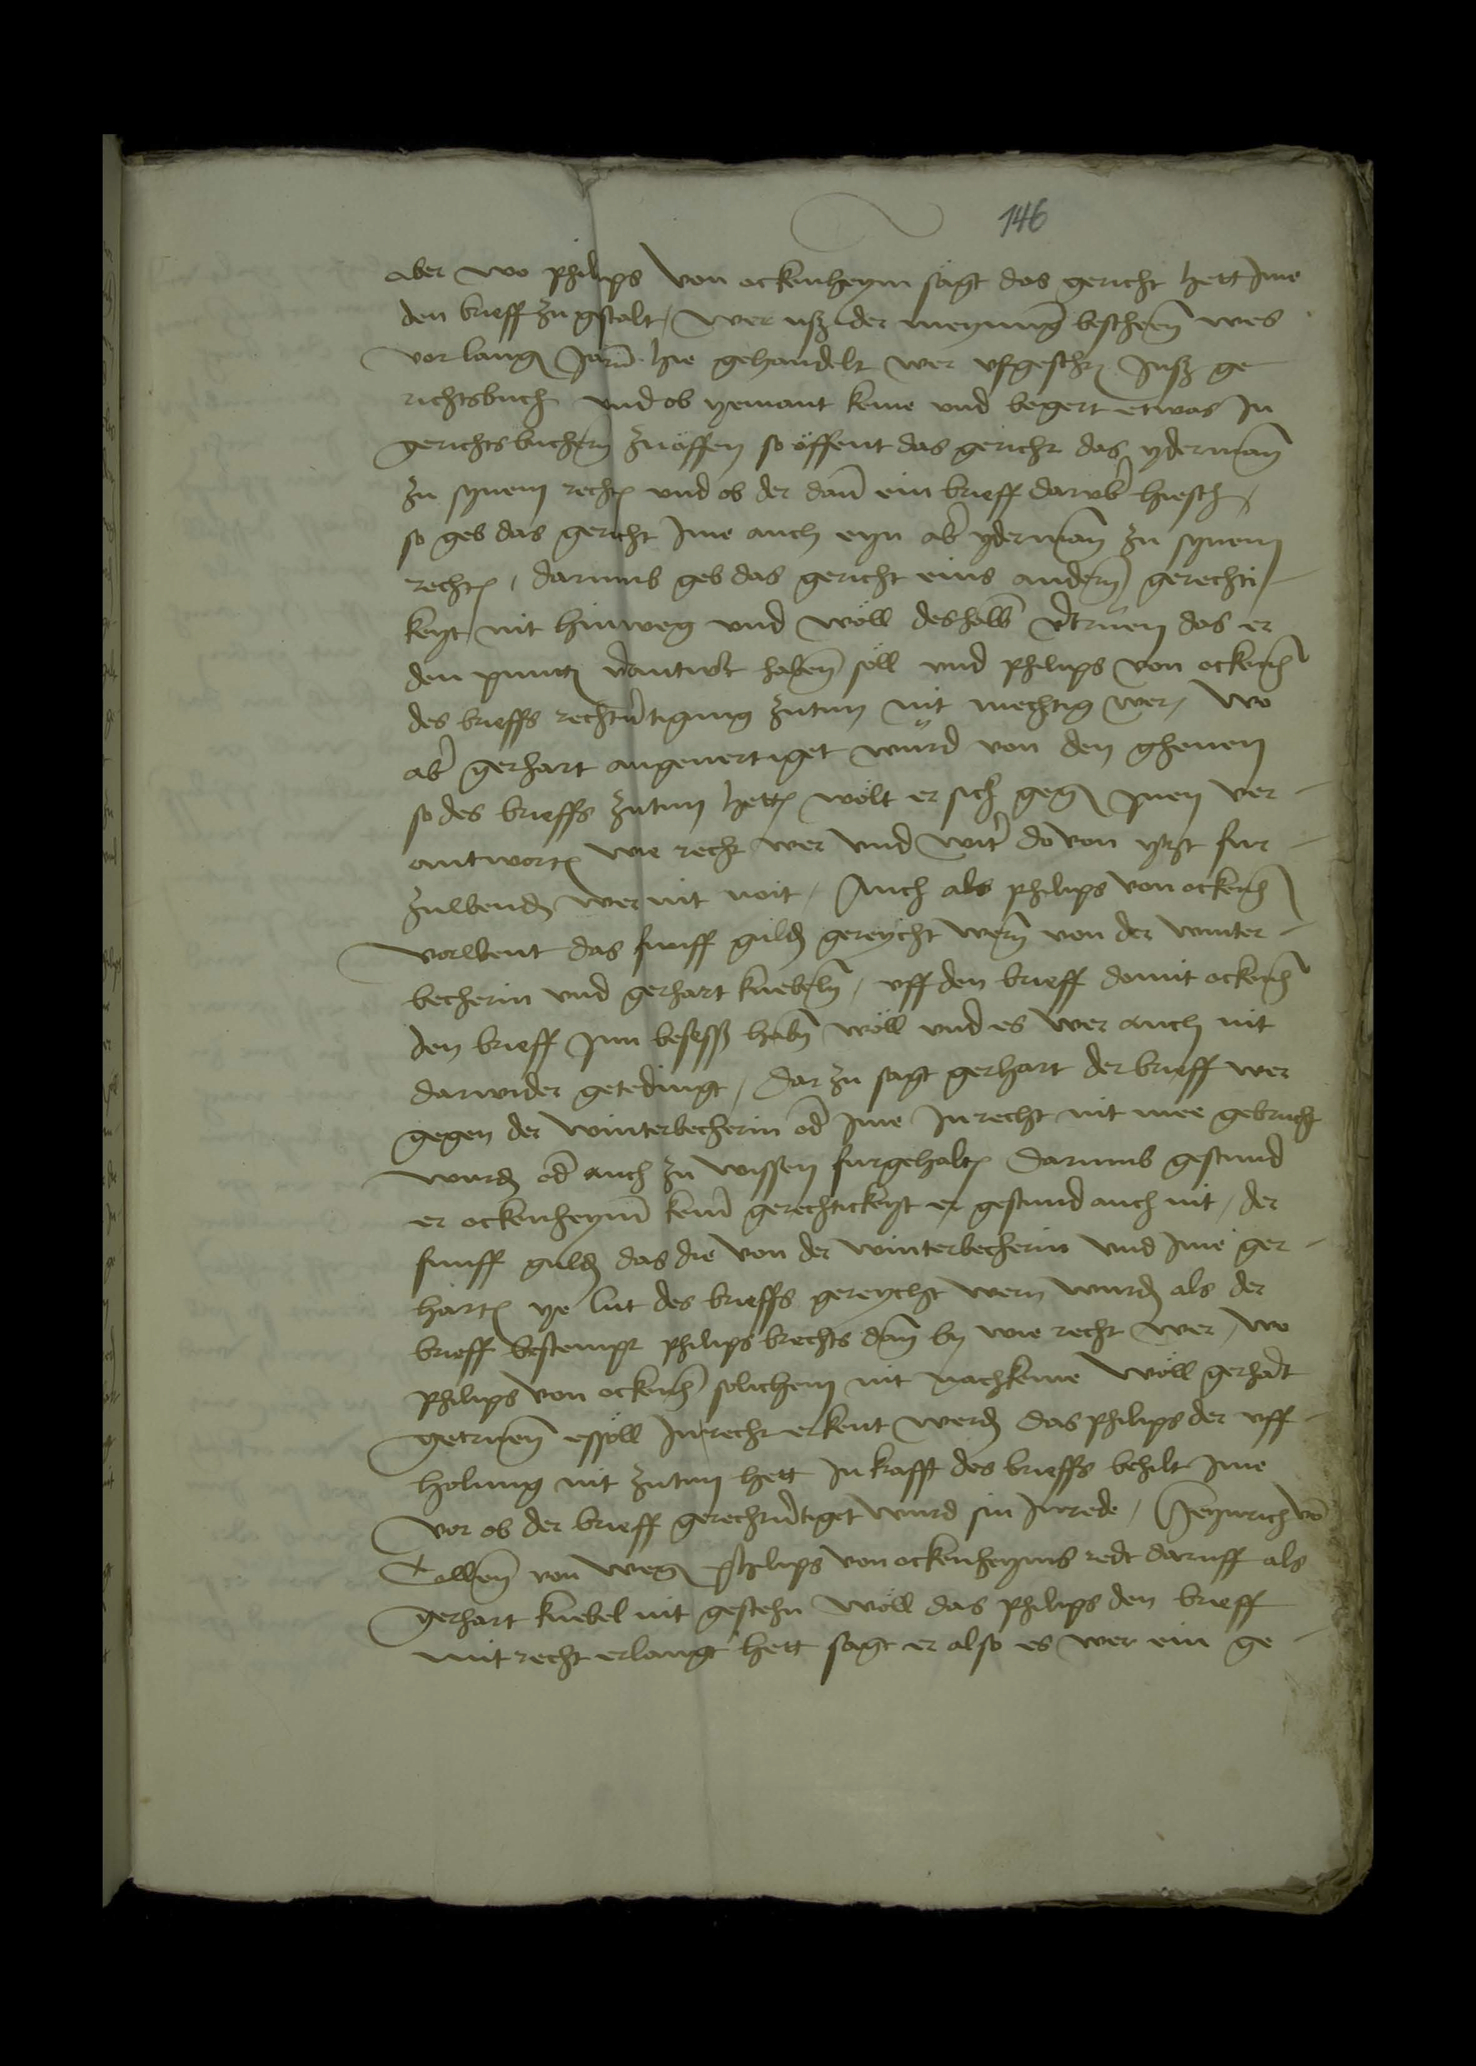 146
aber wo philips von ockenheym sagt das gericht hett Ime
den brieff zu gstalt / wer usz der meynung bescheen wes
vor lang Jarn hie gehandelt wer ufgeschr Insz ge
richtsbuch und ob yemant keme und begert etwas In
gerichts buchern zuöffen so öffent das gericht das yderman
zu synem recht und ob der dan ein brieff darub hiesch
so geb das gericht Ime auch eyn ab yderman zu synem
recht / darumb geb das gericht eins andern gerechti
keyt nit hinweg und wöll deshalb vertruen das er
den punct verantwort haben söll und philips von ockenh
des brieffs rechtvertigung zutun nit mechtig wer / Wo
ab gerhart angevertiget würd von den ghenen
so des brieffs zutun hett wölt er sich geg Inen ver
antwort wie recht wer und wit do von ytzt fur
zuwend wer nit noit / Auch als philips von ockenh
vorwent das funff guld gereycht wern von der winter
becherin und gerhart knebeln / uff den brieff domit ockenh
den brieff Inn besesß haben wöll und es wer auch nit
darwider getedingt / Dar zu sagt gerhart der brieff wer
gegen der winterbecherin od Ime In recht nit mee gebrucht
wurd od auch zu wissen furgehalt Darumb gestund
er ockenheym keinr gerechtickeyt er gestund auch nit / der
funff guld das die von der winterbecherin und Ime ger
hart ye lut des brieffs gereycht wern wurd als der
brieff bestempt philips brechts dan by wie recht wer / wo
philips von ockenh solichem nit nachkeme wöll gerhart
getruen es söll In recht erkent werd das philips der uff
holung nit zutun hett In krafft des brieffs behilt Ime
vor ob der brieff gerechtvertiget wurd sin Inrede / Heynrich vo
weg Philips von ockenheyms redt daruff als
gerhart knebel nit gestehn wöll das philips den brieff
mit recht erlangt hett sagt er also es wer ein ge